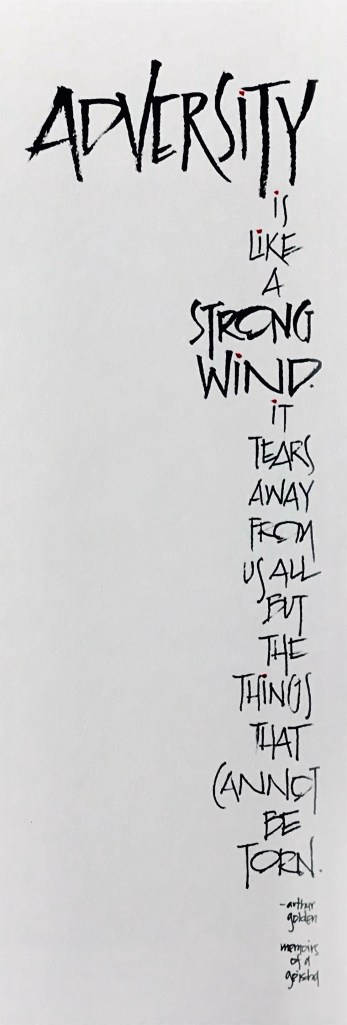 ADVERSiTY
iS
LiKE
A
STRONG
WiND.
iT
TEARS
AWAY
FROM
US ALL
BUT
THE
THiNGS
THAT
CANNOT
BE
TORN.
-arthur
golden
memoirs
of a
geisha